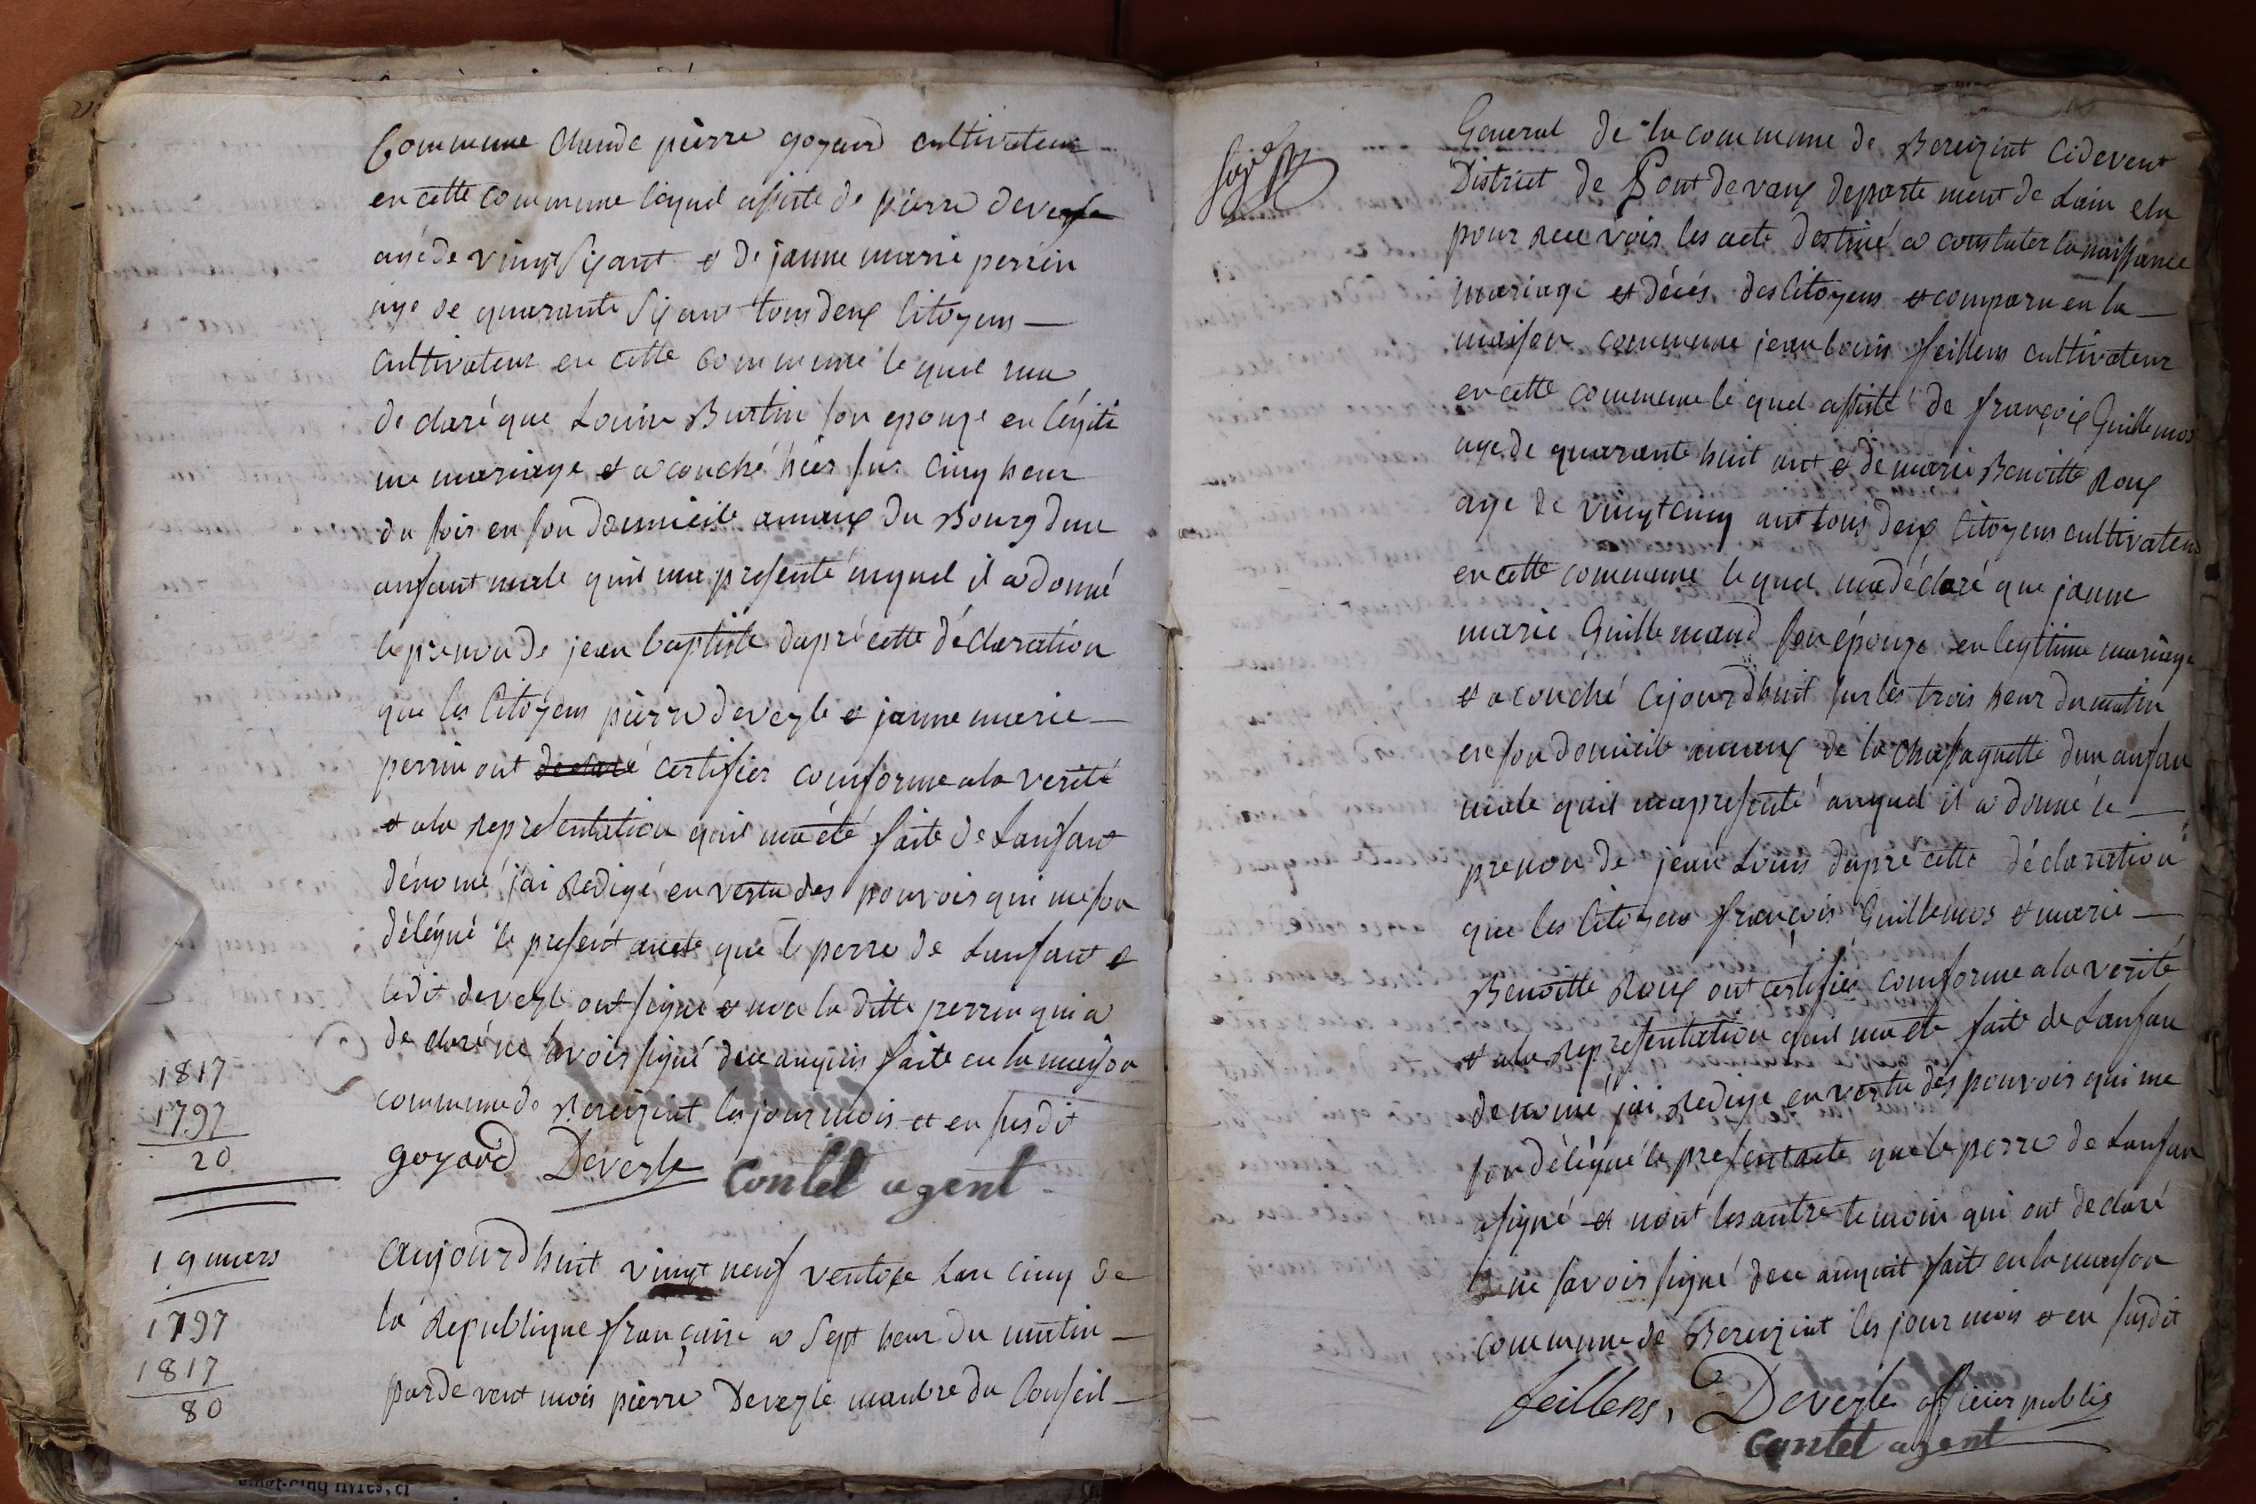 Commune Claude pierre goyard cultivateur
en cette commune lequel assisté de pierre deveyle
agé de vingt sixant & de janne marie perrin
age de quarante sixans tous deux Citoyens —
cultivateur en cette commune le quel ma
déclaré que Louise Burtin son epouze en légiti
me mariage et acouché hier sur cinq heur
du soir en son domicile aumaux du Bourg dun
anfant male quil ma presenté auquel il a donné
le prenon de jean baptiste dapré cette déclaration
que les Citoyens pierre deveyle & janne marie —
perrin ont declaré certifier comforme ala verité
et ala representation quil ma été faite de Lanfant
dénomé jai Redigé en vertu des pouvoirs qui me son
délégué le present acte que le perre de Lanfant &
ledit deveyle ont signé & non la ditte perrin qui a
declaré ne savoir signé de ce anquis faite en la maison
commune de Bereizint les jour mois et en susdit
goyard Deveyle Contet agent
1817
1797
20
aujourdhuit vingt neuf ventose Lan cinq de
la Republique française a Sept heur du matin —
par de vent mois pierre Deveyle manbre du Conseil —
19 mars
1797
1817
80
General de la commune de Bereizint Cidevent
District de Pont de vaux departement de Lain elu
pour recevoir les acte destiné a constater la naissance
mariage et décés des Citoyens et comparu en la —
maison commune jean louis feillens cultivateur
en cette commune le quel assisté de françois Guillemos
age de quarante huit ant & de marie Benoitte Roux
age de vingt cinq ant tous deux Citoyens cultivateur
en cette commune le quel ma déclaré que janne
marie Guillemaud son épouze en legitime mariage
et acouché cejourdhuit sur les trois heur du matin
en son domicile aumaux de la Chassagnette dun anfan
male quil ma presenté auquel il a donné le —
prenon de jean Louis dapré cette déclaration
que les Citoyens françois Guillemos et marie —
Benoitte Roux ont certifier comforme ala verité
et ala representation quil ma été faite de Lanfan
dénomé jai Redigé en vertu des pouvoirs qui me
son délégué le present acte que le perre de Lanfan
a signé et nont les autre temoin qui ont declaré
ne savoir signé de ce anquit fait en la maison
commune de Bereizint les jour mois & en susdit
feillens, Deveyle officier public
Contet agent